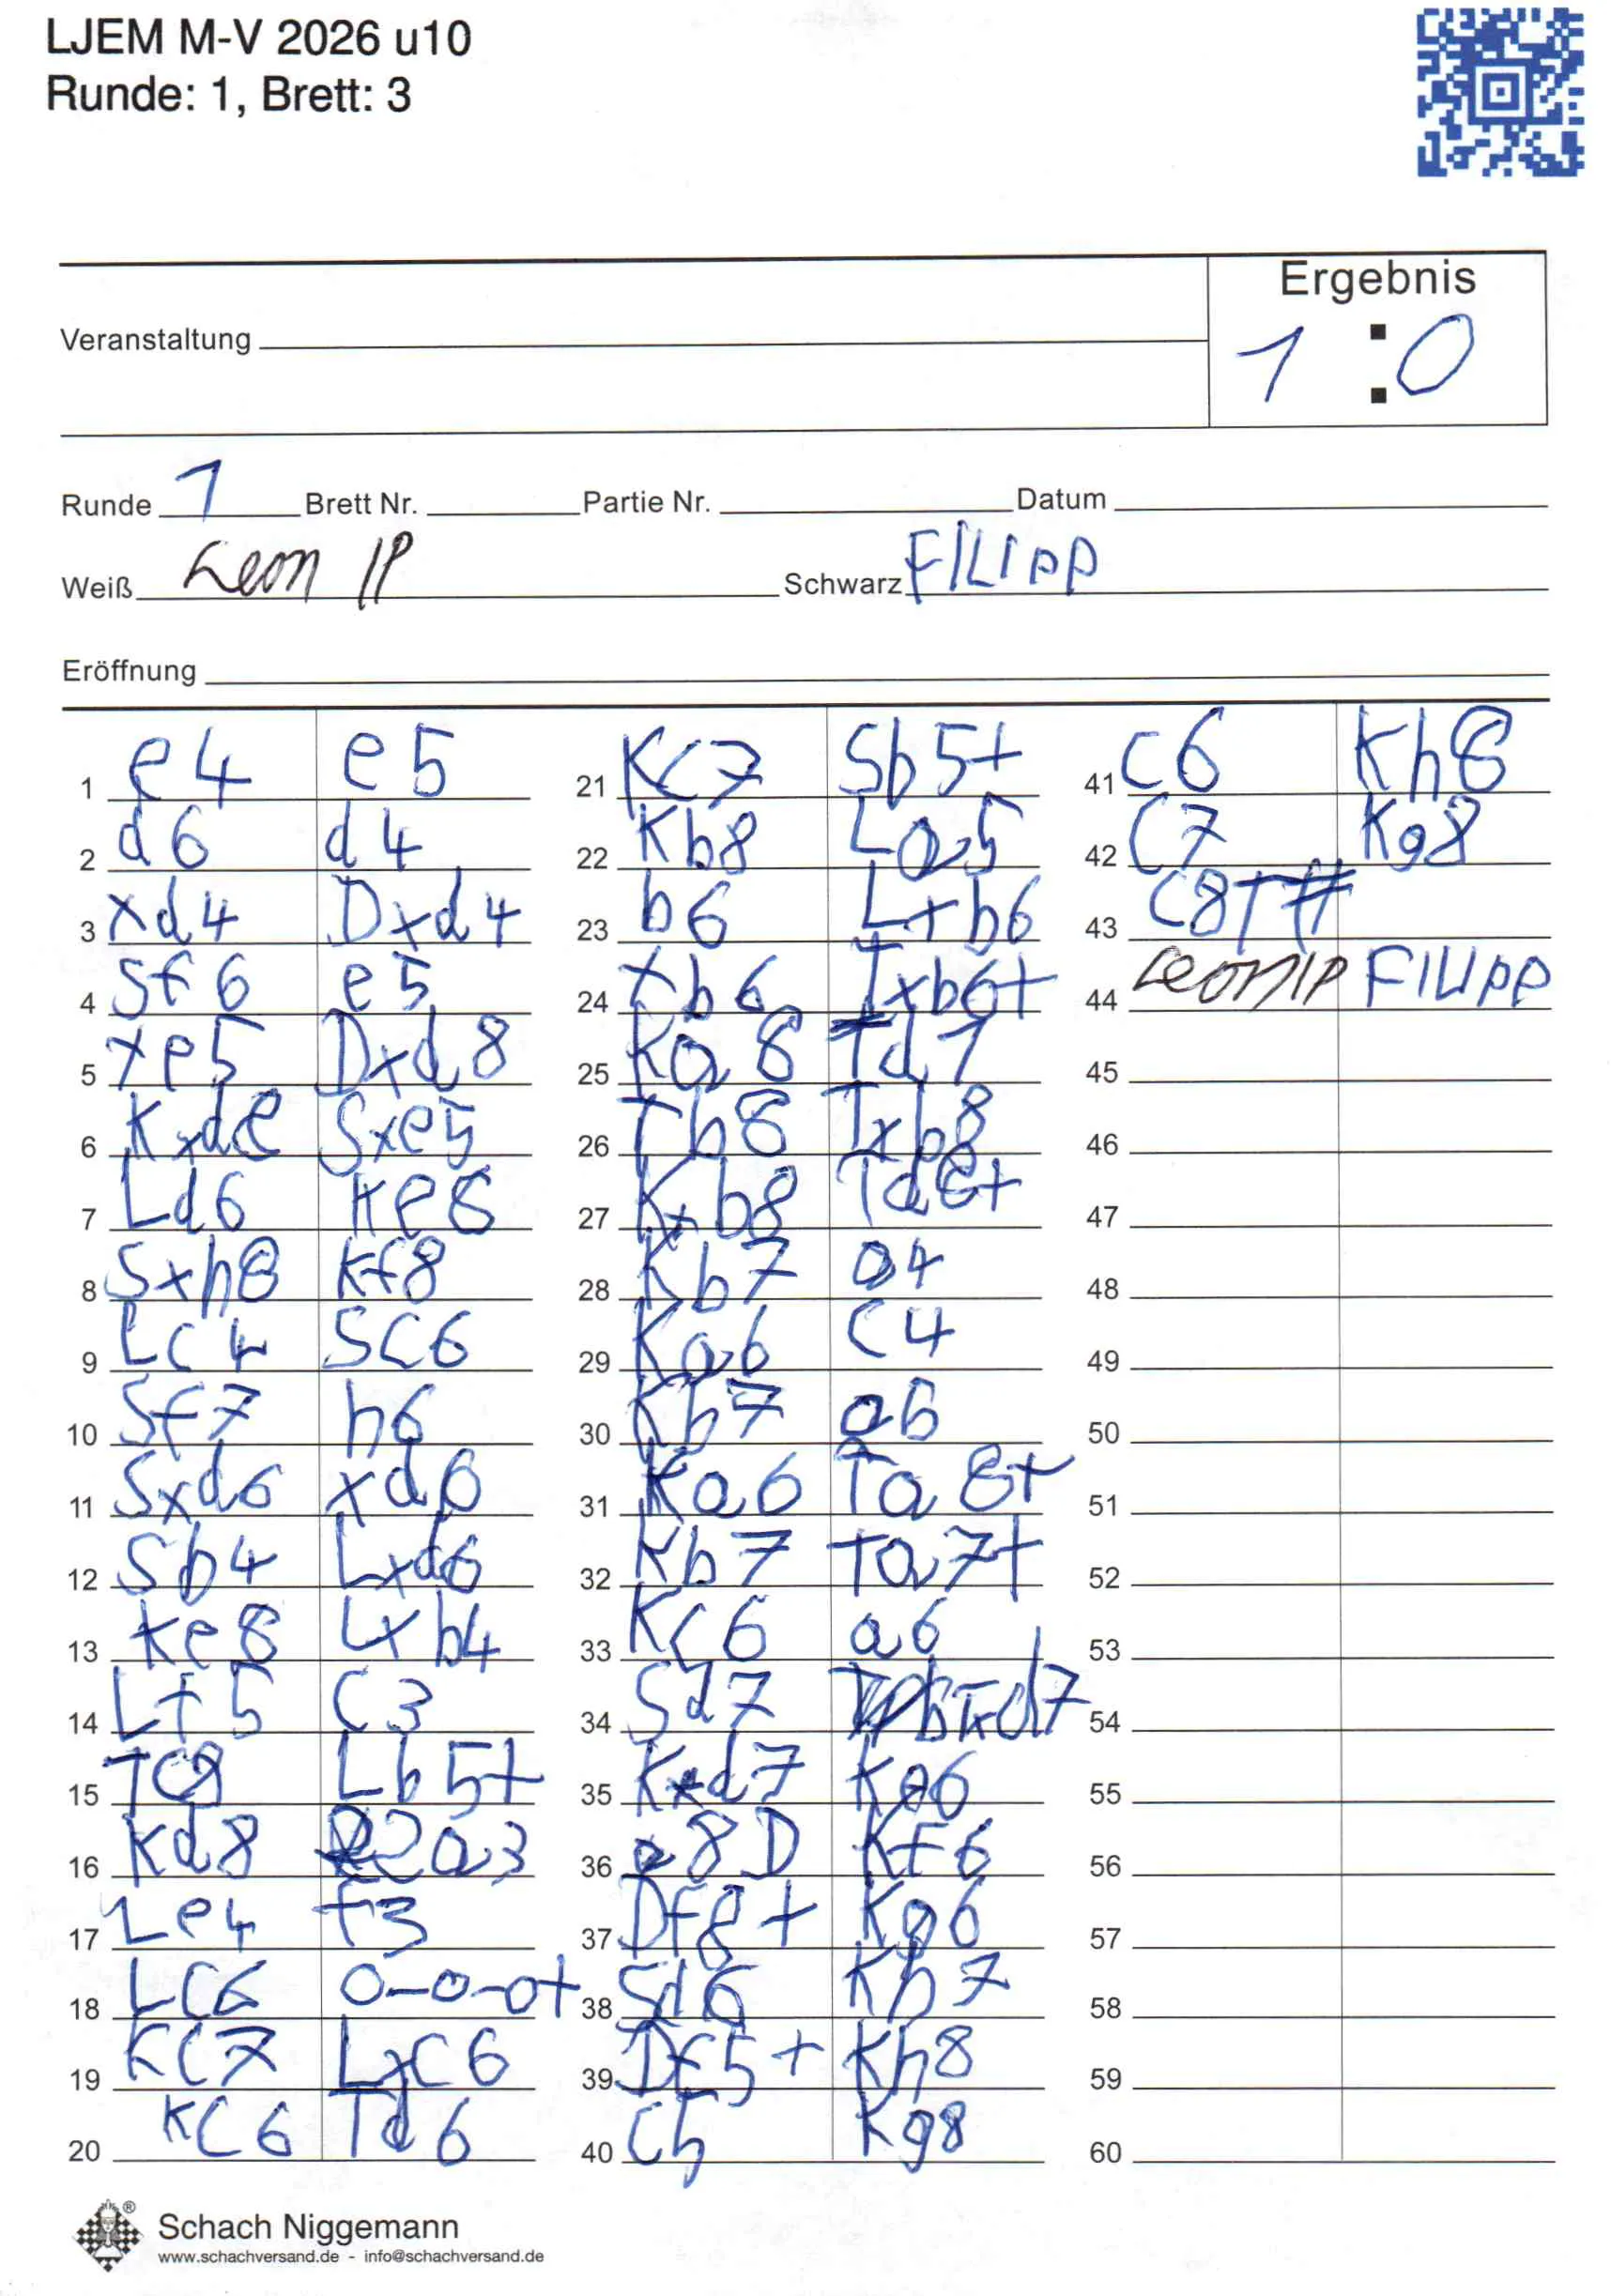 LJEM M-V 2026 u10
Runde: 1, Brett: 3
Ergebnis
Veranstaltung
1 : 0
Runde 1 Brett Nr. Partie Nr. Datum
Weiß Leon IP Schwarz FILIPP
Eröffnung
1 e4 e5
2 d6 d4
3 xd4 Dxd4
4 Sf6 e5
5 xe5 Dxd8
6 Kxd8 Sxe5
7 Ld6 Ke8
8 Sxh8 Kf8
9 Lc4 Sc6
10 Sf7 h6
11 Sxd6 xd6
12 Sb4 Lxd6
13 Ke8 Lxb4
14 Lf5 C3
15 TC8 Lb5+
16 Kd8 a3
17 Le4 f3
18 LC6 0-0-0+
19 KC7 LxC6
20 KC6 Td6
21 KC7 Sb5+
22 Kb8 La5
23 b6 Lxb6
24 xb6 Txb6+
25 Ka8 Td1
26 Tb8 Txb8
27 Kxb8 Td8+
28 Kb7 a4
29 Ka6 C4
30 Kb7 ab
31 Ka6 Ta8+
32 Kb7 Ta7+
33 KC6 a6
34 Sd7 Txd7
35 Kxd7 Ke6
36 e8D Kf6
37 Df8+ Kg6
38 Sd6 Kh7
39 Df5+ Kh8
40 C5 Kg8
41 C6 Kh8
42 C7 Kg8
43 C8T#
44 Leon IP FILIPP
45
46
47
48
49
50
51
52
53
54
55
56
57
58
59
60
Schach Niggemann
www.schachversand.de - info@schachversand.de